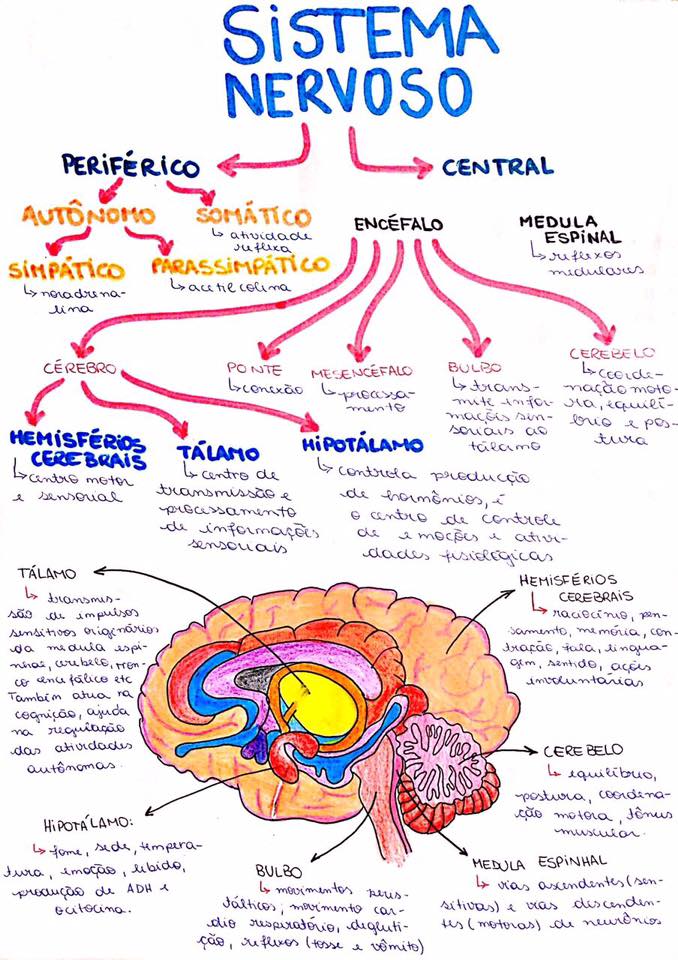 SISTEMA
NERVOSO
PERIFÉRICO
CENTRAL
AUTÔNOMO
SOMÁTICO
↳ atividade
reflexa
SIMPÁTICO
↳ noradrena-
lina
PARASSIMPÁTICO
↳ acetilcolina
ENCÉFALO
MEDULA
ESPINAL
↳ reflexos
medulares
CÉREBRO
PONTE
↳ conexão
MESENCÉFALO
↳ processa-
mento
BULBO
↳ trans-
mite infor-
mações sen-
soriais ao
tálamo
CEREBELO
↳ coorde-
nação moto-
ra, equilí-
brio e pos-
tura
HEMISFÉRIOS
CEREBRAIS
↳ centro motor
e sensorial
TÁLAMO
↳ centro de
transmissão e
processamento
de informações
sensoriais
HIPOTÁLAMO
↳ controla produção
de hormônios, é
o centro de controle
de emoções e ativi-
dades fisiológicas
TÁLAMO
↳ transmis-
são de impulsos
sensitivos originários
da medula espi-
nhal, cerebelo, tron-
co encefálico etc
Também atua na
cognição, ajuda
na regulação
das atividades
autônomas.
HEMISFÉRIOS
CEREBRAIS
↳ raciocínio, pen-
samento, memória, con-
tração, fala, lingua-
gem, sentido, ações
involuntárias
CEREBELO
↳ equilíbrio,
postura, coordena-
ção motora, tônus
muscular.
HIPOTÁLAMO:
↳ fome, sede, tempera-
tura, emoção, libido,
produção de ADH e
ocitocina.
BULBO
↳ movimentos peris-
tálticos, movimento car-
dio respiratório, degluti-
ção, reflexos (tosse e vômito)
MEDULA ESPINHAL
↳ vias ascendentes (sen-
sitivas) e vias discenden-
tes (motoras) de neurônios